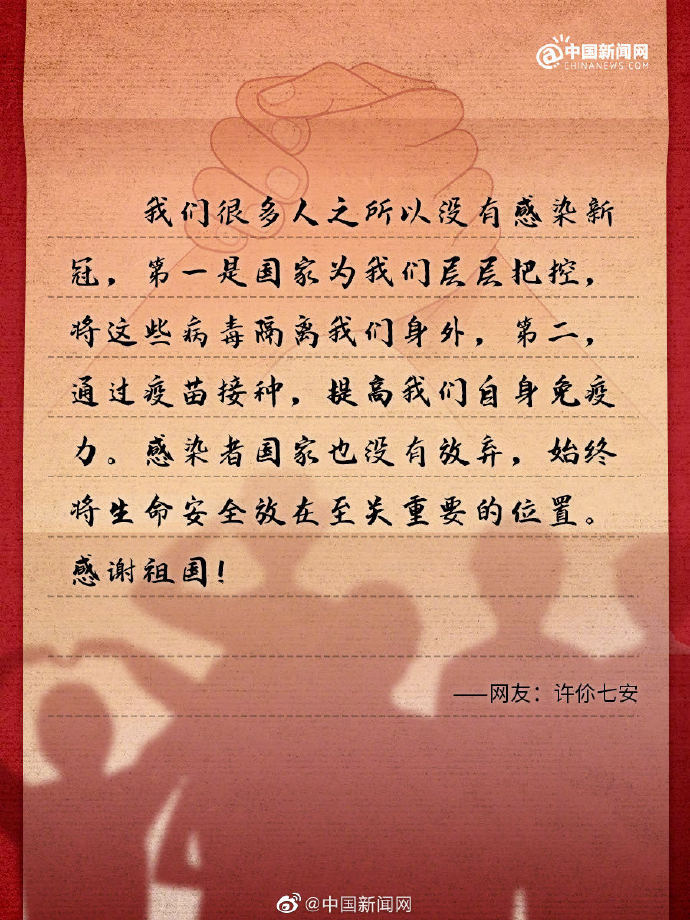 @中国新闻网
CHINANEWS.COM
我们很多人之所以没有感染新
冠，第一是国家为我们层层把控，
将这些病毒隔离我们身外，第二，
通过疫苗接种，提高我们自身免疫
力。感染者国家也没有放弃，始终
将生命安全放在至关重要的位置。
感谢祖国！
——网友：许你七安
@中国新闻网